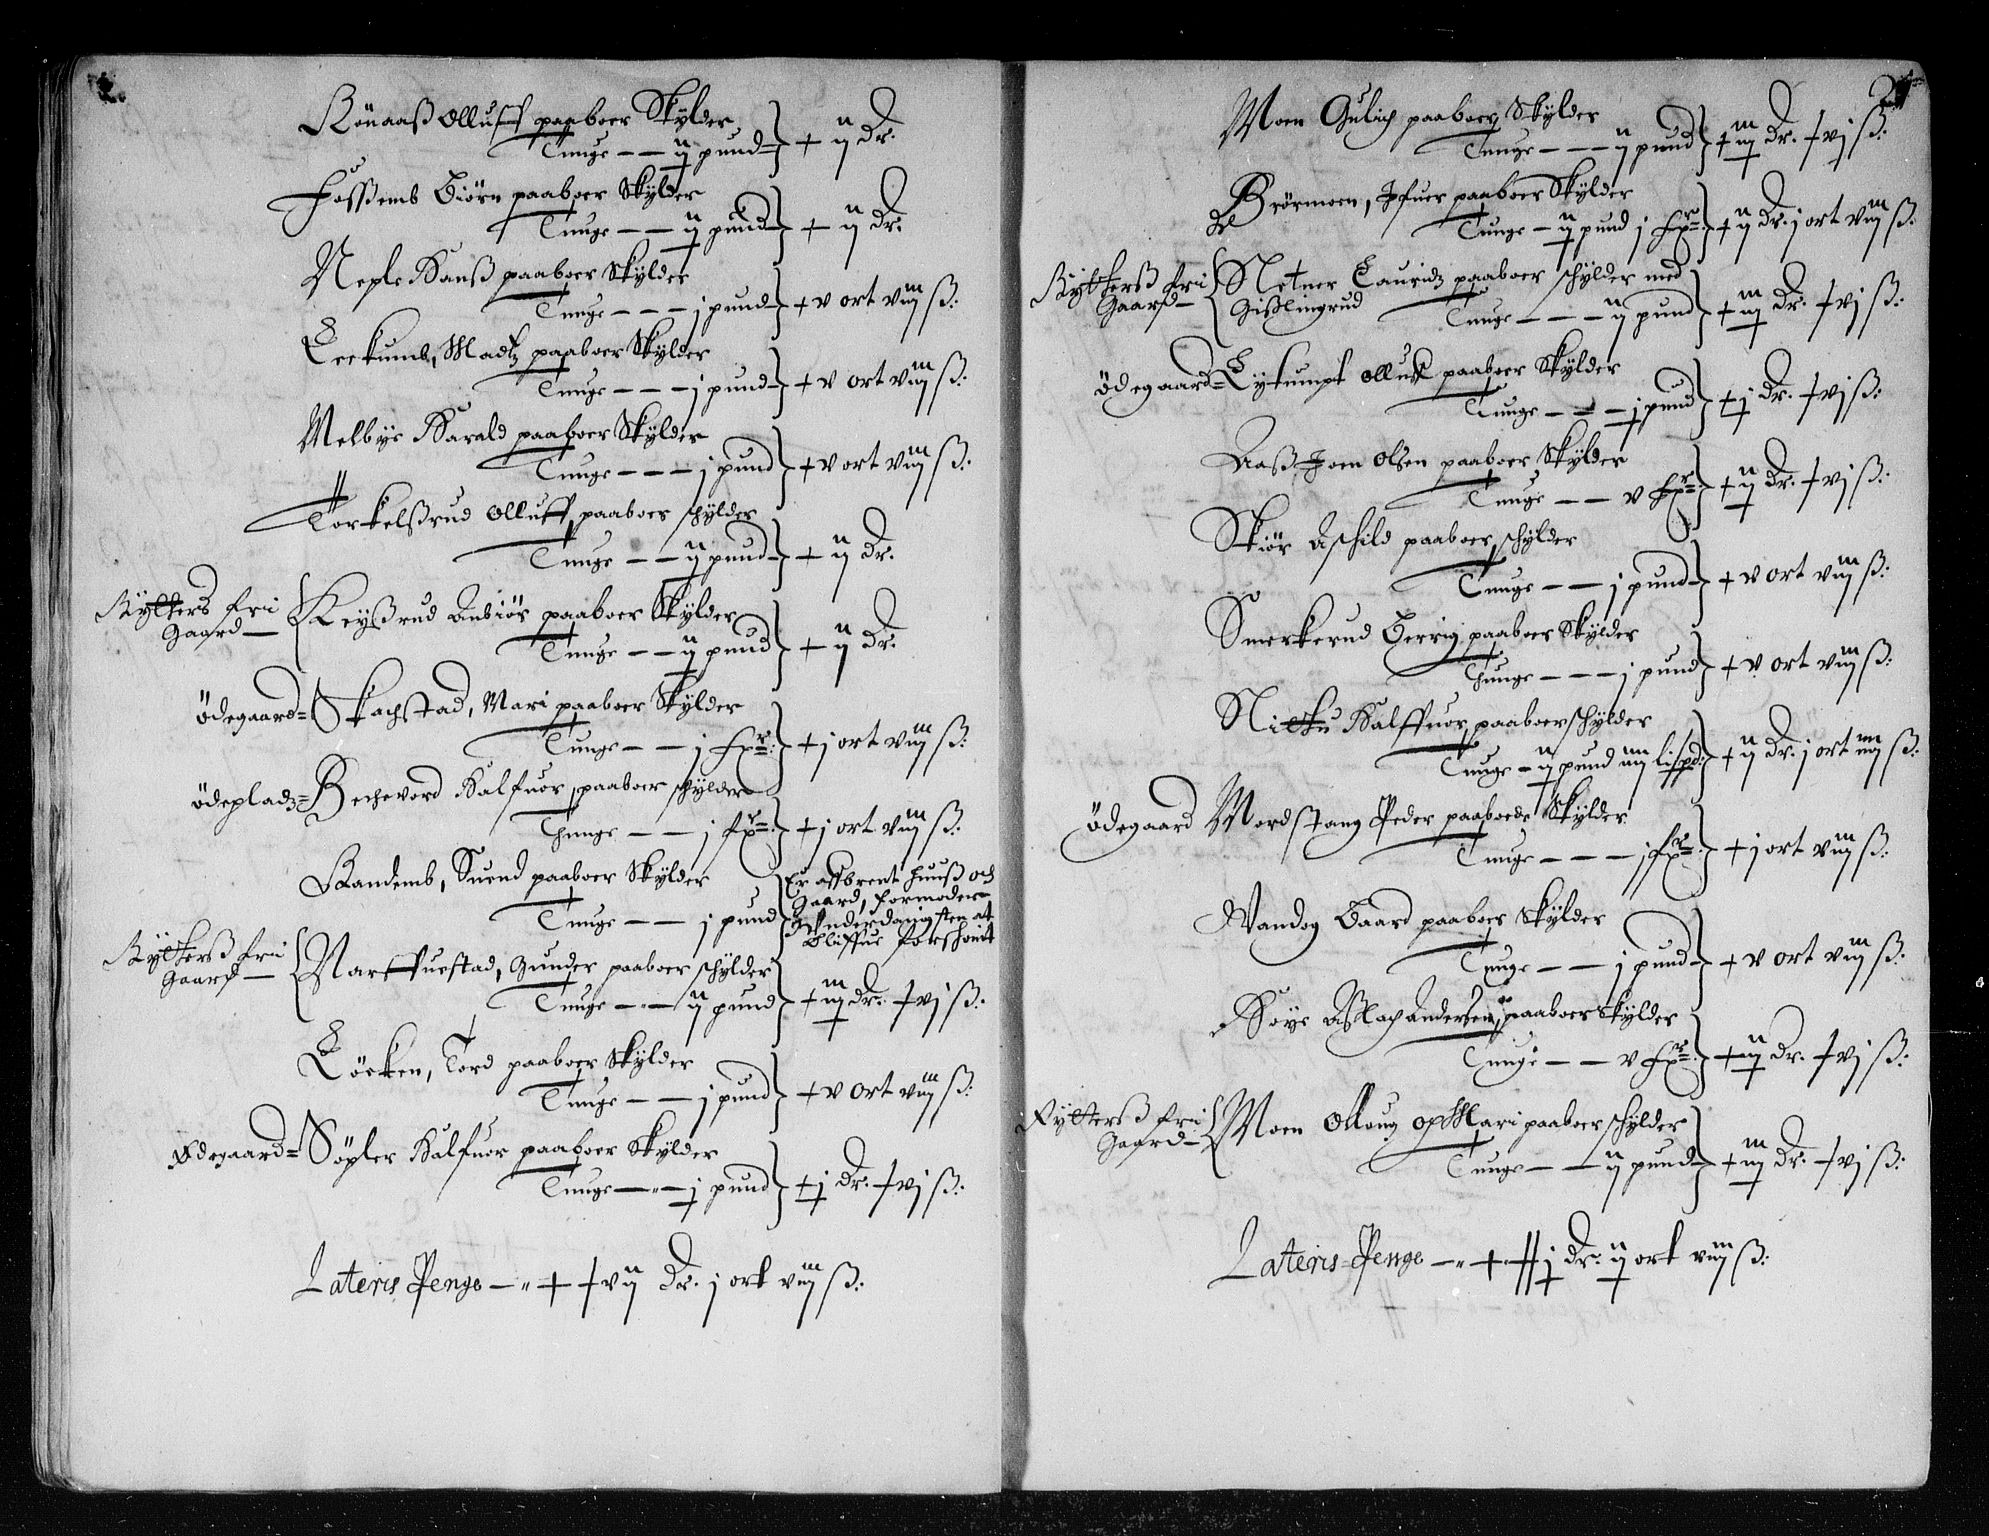 Rönaaß Olluff paaboer Skÿlder
Tunge — — ij pund — ij Dr.
Fossemb Biörn paaboer Skÿlder
Tunge — — ij pund — ij Dr.
Neple Hanß paaboer Skÿlder
Tunge — — — j pund — v ort viij ß:
Leekumb, Madtz paaboer Skÿlder
Tunge — — — j pund — v ort viij ß:
Melbÿe Harald paaboer Skÿlder
Tunge — — — j pund v ort viij ß:
Torkelßrud Olluff paaboer schÿlder
Tunge — — ij pund — ij Dr.
Rÿtterß fri Gaard — Keÿßrud Anbiör paaboer Skÿlder
Tunge — — ij pund ij Dr.
Ödegaard = Skachstad, Mari paaboer Skÿlder
Tunge — — j Fxr: j ort viij ß:
Ödepladz = Bechevord Halfuor paaboer schÿlder
Thunge — — j fxr: j ort viij ß:
Randemb, Suend paaboer Skÿlder
Tunge — — j pund
Er affbrent huuß och
Gaard, formoder
Vnderdanigsten at
bliffue forschont
Rÿtterß fri Gaard — Narffuestad, Gunder paaboer schÿlder
Tunge — — ij pund iij Dr. vj ß:
Löcken, Tord paaboer Skÿlder
Tunge — — j pund v ort viij ß:
Ödegaard = Söÿler Halfuor paaboer Skÿlder
Tunge — j pund j Dr. vj ß:
Lateris Penge — vij Dr. j ort viij ß:
Moen Gulich paaboer Skÿlder
Tunge — — — ij pund iij Dr. vj ß:
Brörmoen, Jfuer paaboer Skÿlder
Tunge — ij pund j Fxr: ij Dr. j ort viij ß:
Rÿtterß fri Gaard — Netner Lauridz paaboer schÿlder med
Gißlingrud
Tunge — — — ij pund iij Dr. vj ß:
Ödegaard = Lÿkumpt Olluff paaboer Skÿlder
Tunge — — — j pund j Dr. vj ß:
Aaß Joen Olsen paaboer Skÿlder
Tunge — — v Fxr: ij Dr. vj ß:
Skiör Aschild paaboer schÿlder
Tunge — — j pund — v ort viij ß:
Smerkerud Berrig paaboer Skÿlder
Thunge — — — j pund v ort viij ß:
Halffuor paaboer schÿlder
Tunge — ij pund iiij lispd: ij Dr. j ort iiij ß:
Ödegaard Mordstang Peder paaboede Skÿlder
Tunge — — — j fxr: j ort viij ß:
Wandog Baard paaboer Skÿlder
Tunge — — j pund — v ort viij ß:
Höÿe Aslach Andersen, paaboer Skÿlder
Tunge — — v Fxr: ij Dr. vj ß:
Rÿtterß fri Gaard — Moen Olloug op Mari paaboer schÿlder
Tunge — — ij pund — iij Dr. vj ß:
Lateris Penge — j Dr. ij ort viij ß: